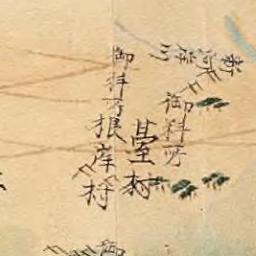 新河岸川
御料所
臺村
御料所
根岸村